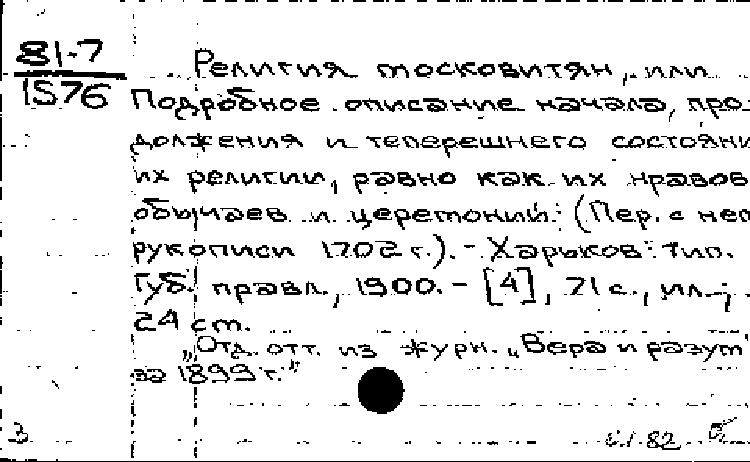 81-7
1576
Религия московитян, или
Подробное описание начала, про-
должения и теперешнего состояни
их религии, равно как их нравов
обычаев и церемоний: (Пер. с нем
рукописи 1702 г.). - Харьков: Тип.
Губ. правл., 1900. - [4], 71 с., ил.;
24 см.
„Отд. отт. из журн. „Вера и разум"
за 1899 г."
3
6.1.82